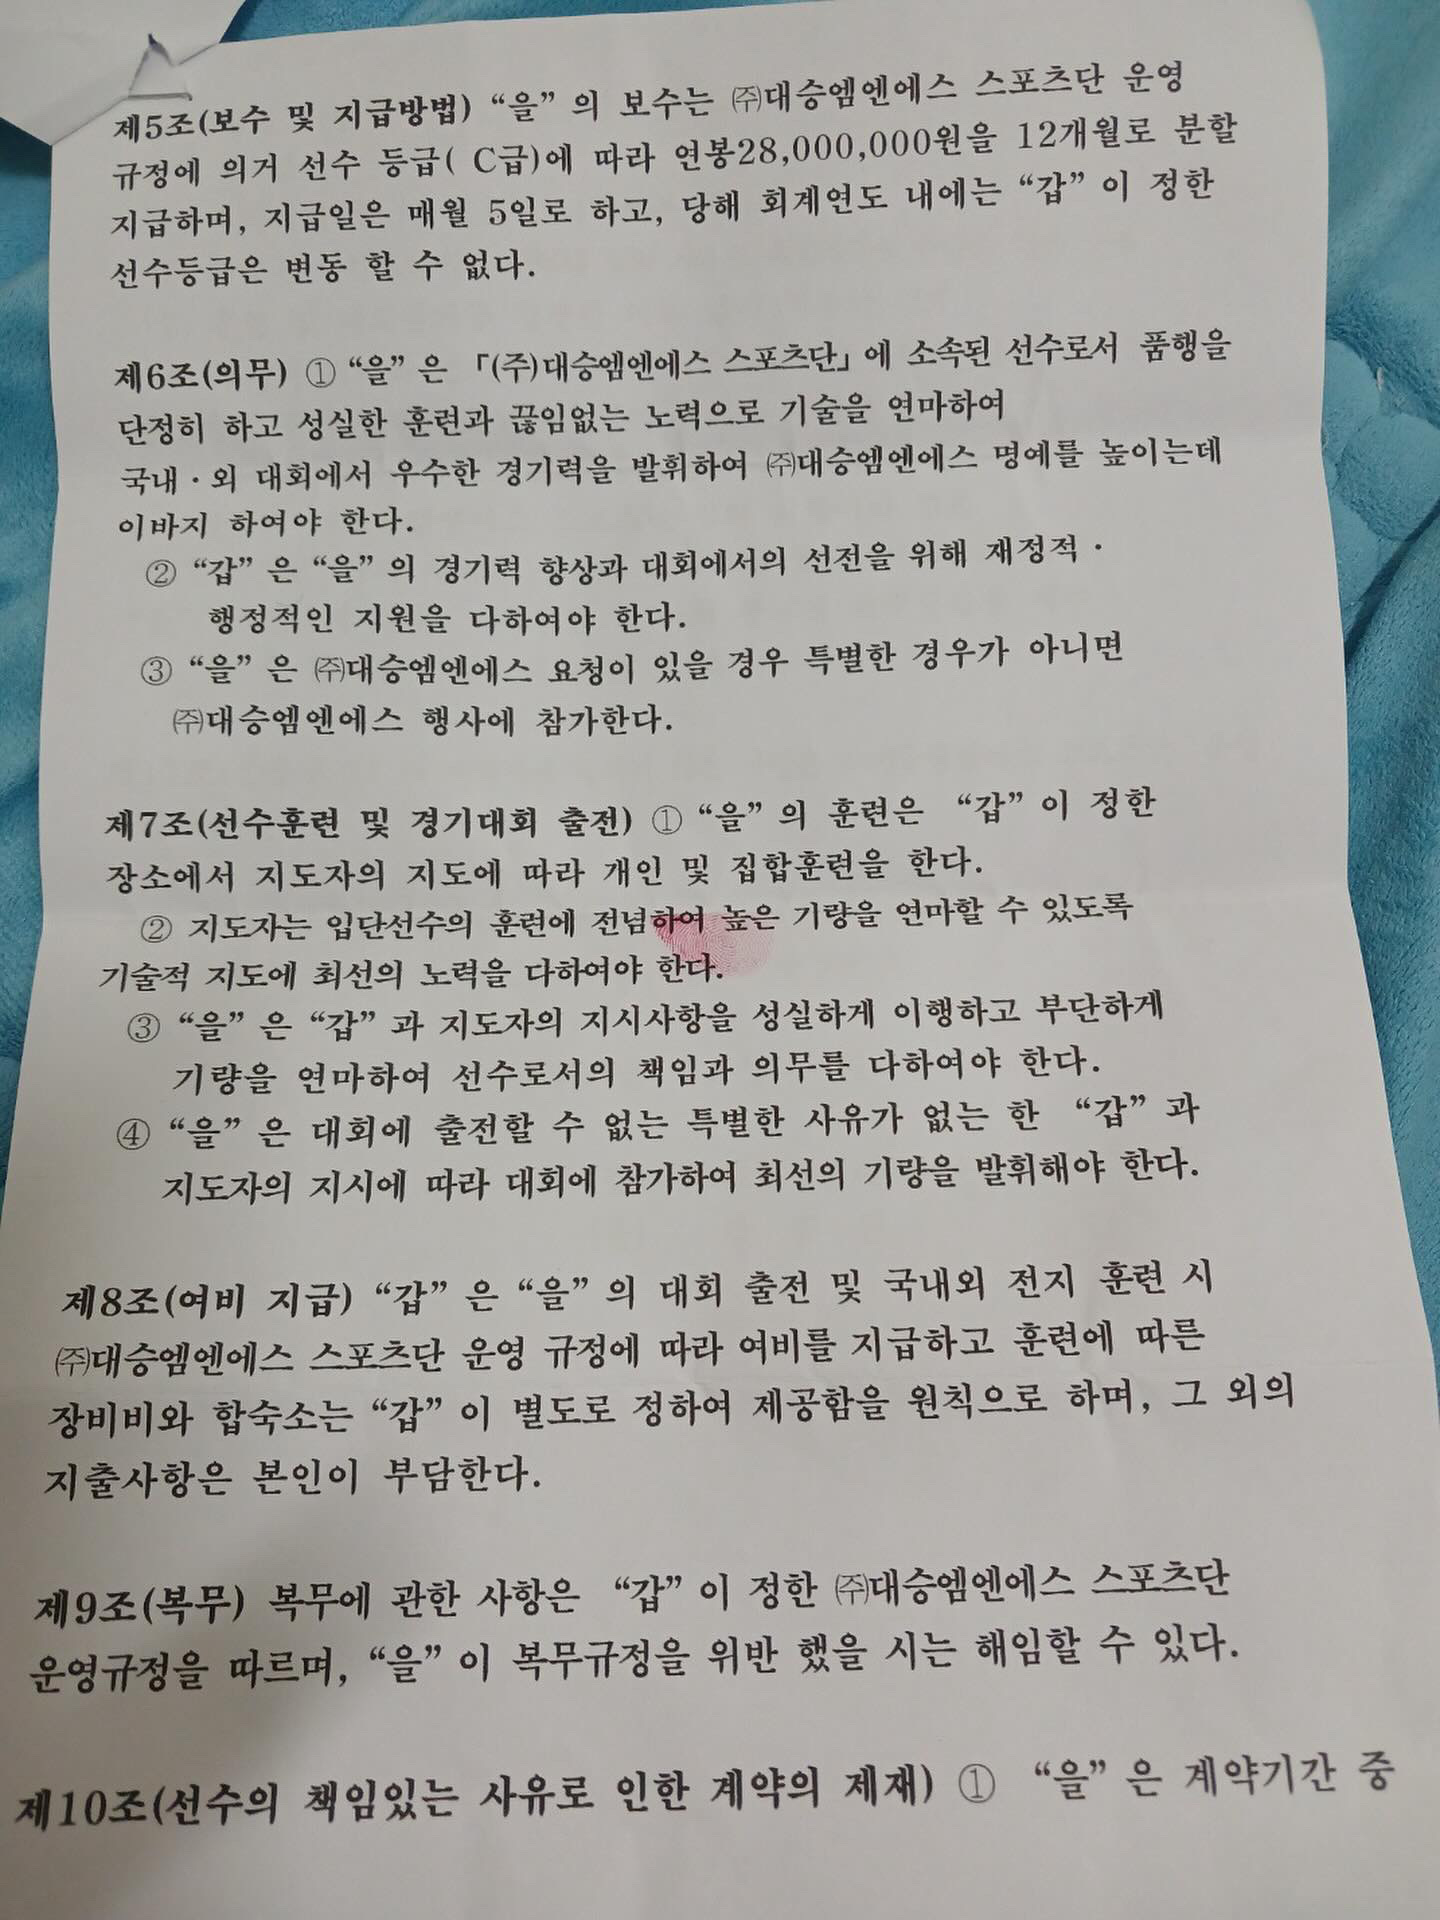 제5조(보수 및 지급방법) “을” 의 보수는 ㈜대승엠엔에스 스포츠단 운영
규정에 의거 선수 등급( C급)에 따라 연봉28,000,000원을 12개월로 분할
지급하며, 지급일은 매월 5일로 하고, 당해 회계연도 내에는 “갑” 이 정한
선수등급은 변동 할 수 없다.
제6조(의무) ① “을” 은 「(주)대승엠엔에스 스포츠단」에 소속된 선수로서 품행을
단정히 하고 성실한 훈련과 끊임없는 노력으로 기술을 연마하여
국내 · 외 대회에서 우수한 경기력을 발휘하여 ㈜대승엠엔에스 명예를 높이는데
이바지 하여야 한다.
② “갑” 은 “을” 의 경기력 향상과 대회에서의 선전을 위해 재정적 ·
행정적인 지원을 다하여야 한다.
③ “을” 은 ㈜대승엠엔에스 요청이 있을 경우 특별한 경우가 아니면
㈜대승엠엔에스 행사에 참가한다.
제7조(선수훈련 및 경기대회 출전) ① “을” 의 훈련은 “갑” 이 정한
장소에서 지도자의 지도에 따라 개인 및 집합훈련을 한다.
② 지도자는 입단선수의 훈련에 전념하여 높은 기량을 연마할 수 있도록
기술적 지도에 최선의 노력을 다하여야 한다.
③ “을” 은 “갑” 과 지도자의 지시사항을 성실하게 이행하고 부단하게
기량을 연마하여 선수로서의 책임과 의무를 다하여야 한다.
④ “을” 은 대회에 출전할 수 없는 특별한 사유가 없는 한 “갑” 과
지도자의 지시에 따라 대회에 참가하여 최선의 기량을 발휘해야 한다.
제8조(여비 지급) “갑” 은 “을” 의 대회 출전 및 국내외 전지 훈련 시
㈜대승엠엔에스 스포츠단 운영 규정에 따라 여비를 지급하고 훈련에 따른
장비비와 합숙소는 “갑” 이 별도로 정하여 제공함을 원칙으로 하며, 그 외의
지출사항은 본인이 부담한다.
제9조(복무) 복무에 관한 사항은 “갑” 이 정한 ㈜대승엠엔에스 스포츠단
운영규정을 따르며, “을” 이 복무규정을 위반 했을 시는 해임할 수 있다.
제10조(선수의 책임있는 사유로 인한 계약의 제재) ① “을” 은 계약기간 중